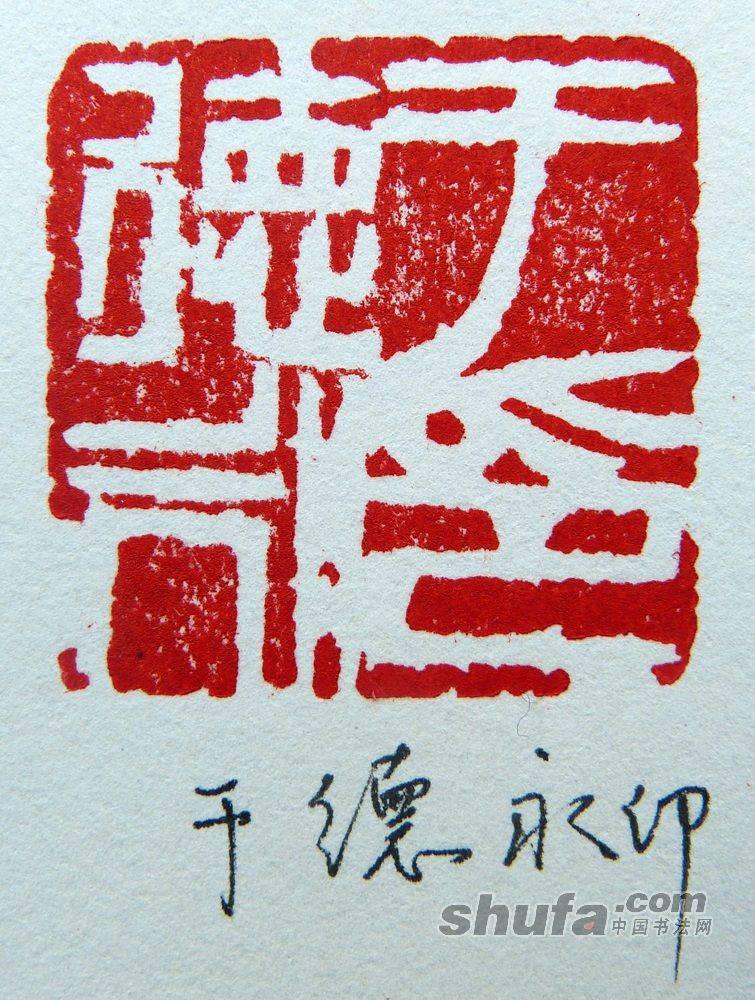 于德
于德永印
shufa.com
中国书法网